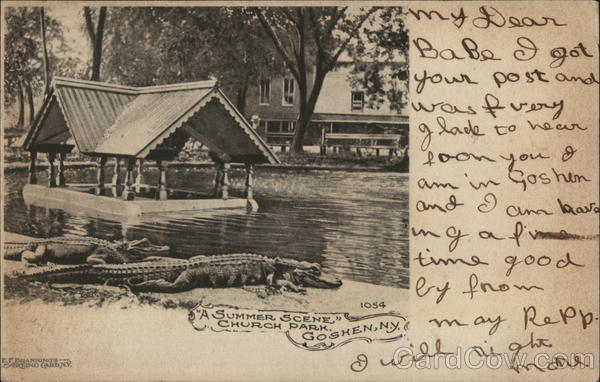 My Dear
BaBe I got
your post and
was f very
glade to hear
foon you I
am in Goshen
and I am haveing
ing a f
time good
by from
may Repp.
I will right
more
1054
"A SUMMER SCENE,"
CHURCH PARK,
GOSHEN, N.Y.
E.F. BRANNING'S
N.Y.
CardCow.com